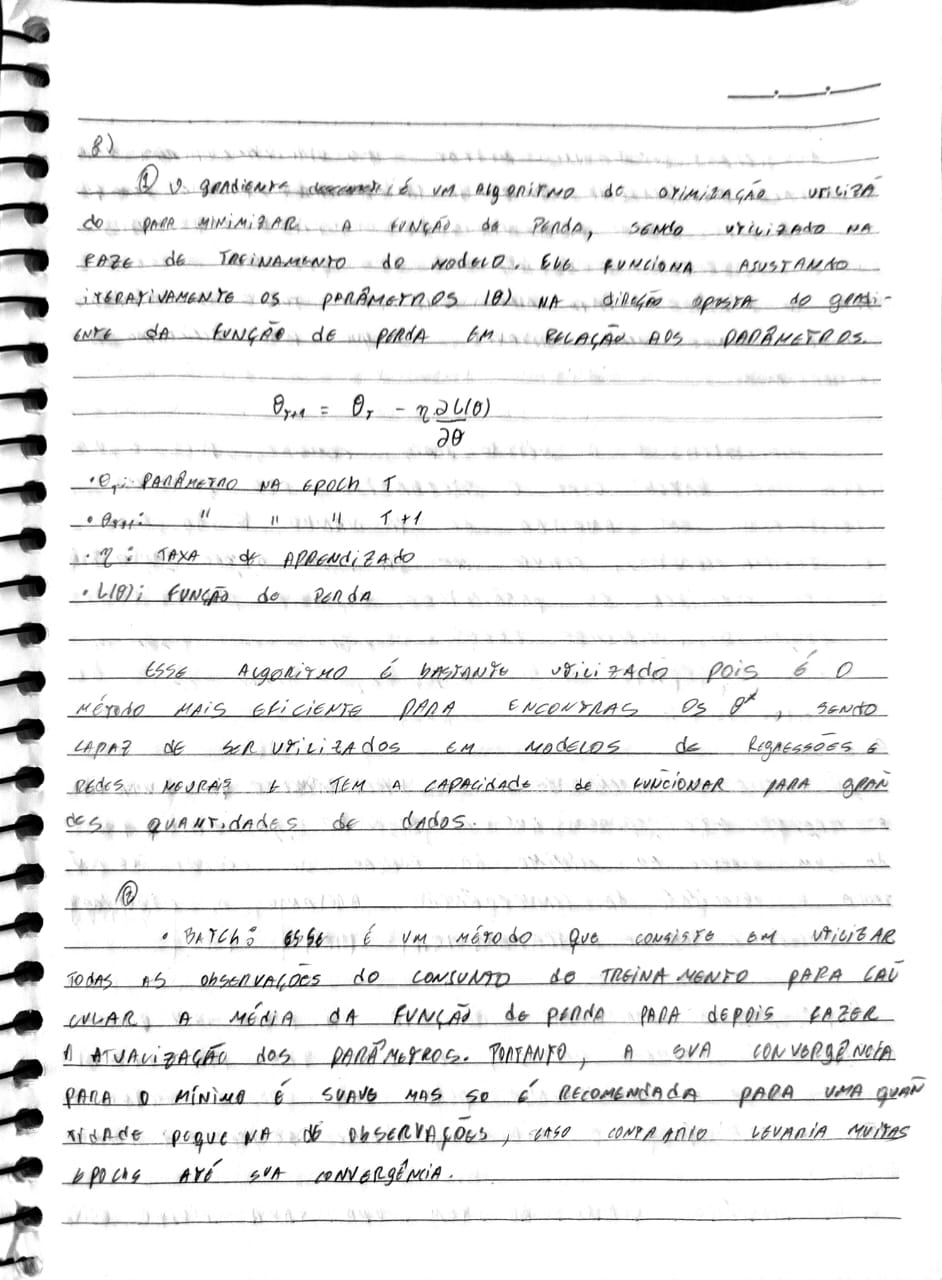 8)
① O gradiente descente é UM Algoritmo de otimização utilizá
do para minimizar a função de perda, sendo utilizado na
faze de treinamento do modelo. Ele funciona ajustando
iterativamente os parâmetros (θ) na direção oposta do gradi-
ente da função de perda em relação aos parâmetros.
θT+1 = θT - η ∂L(θ)
∂θ
• θT: Parâmetro na epoch T
• θT+1: " " " T+1
• η: Taxa de aprendizado
• L(θ): Função de perda
Esse algoritmo é bastante utilizado pois é o
método mais eficiente para encontras os θ*, sendo
capaz de ser utilizados em modelos de regressões e
redes neurais e tem a capacidade de funcionar para gran
des quantidades de dados.
②
• Batch: esse é um método que consiste em utilizar
todas as observações do conjunto de treinamento para cal
cular a média da função de perda para depois fazer
a atualização dos parâmetros. Portanto, a sua convergência
para o mínimo é suave mas so é recomendada para uma quan
tidade pequena de observações, caso contrario levaria muitas
epochs até sua convergência.